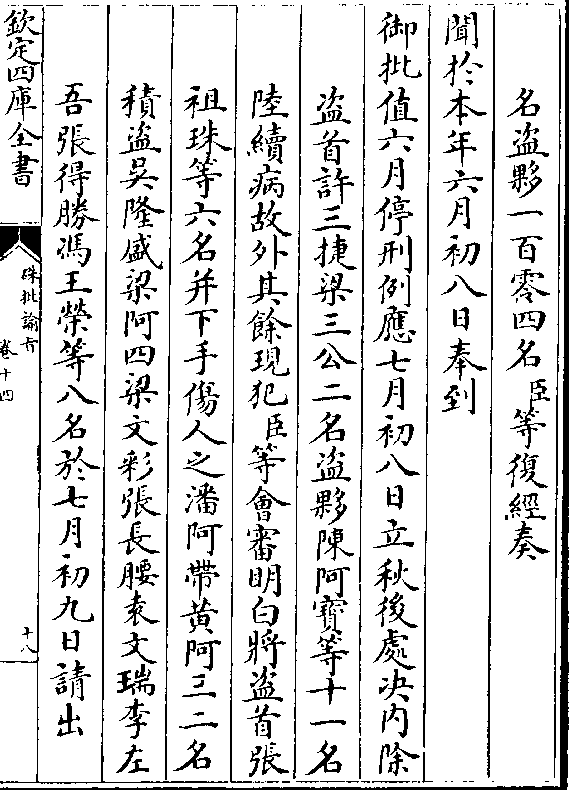 名盜夥一百零四名臣等復經奏
聞於本年六月初八日奉到
御批值六月停刑例應七月初八日立秋後處决内除
盜首許三捷梁三公二名盜夥陳阿寳等十一名
陸續病故外其餘現犯臣等會審明白將盜首張
祖珠等六名并下手傷人之潘阿帶黄阿三二名
積盜吳隆盛梁阿四梁文彩張長腰袁文瑞李左
吾張得勝馮王榮等八名於七月初九日請出
欽定四庫全書
硃批諭旨
卷十四
十八